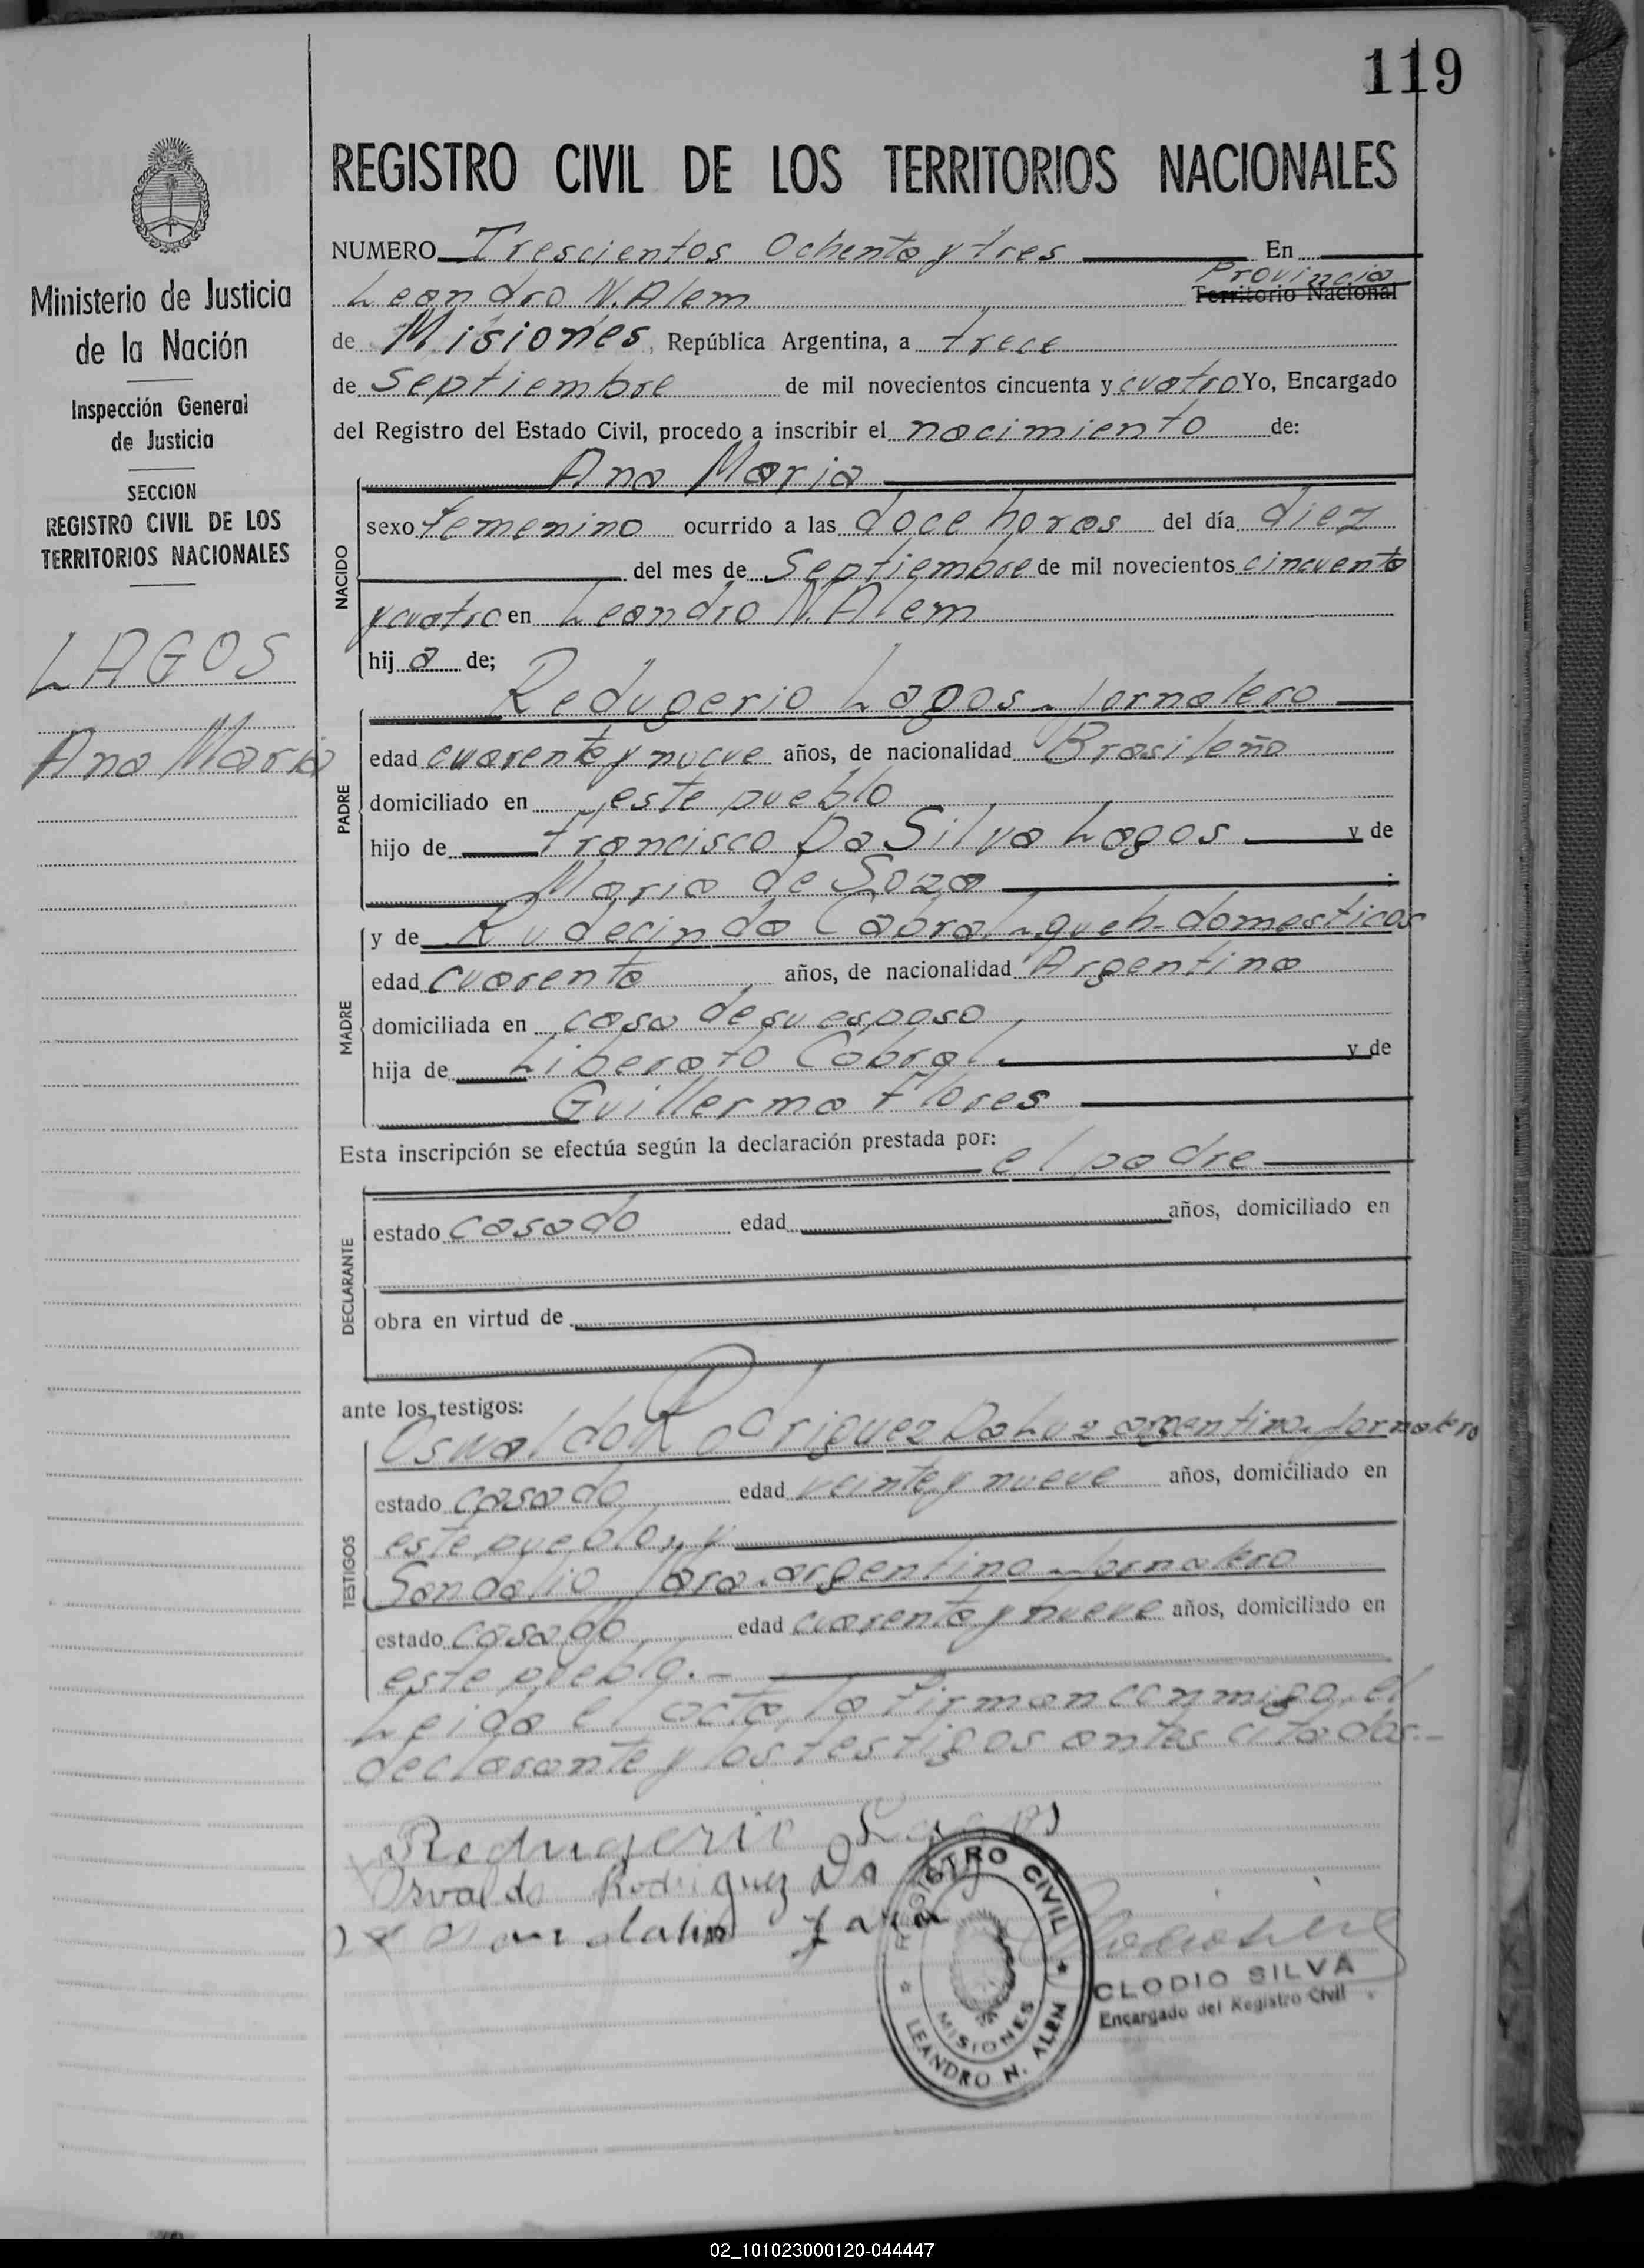 119
REGISTRO CIVIL DE LOS TERRITORIOS NACIONALES
Ministerio de Justicia
de la Nación
Inspección General
de Justicia
SECCION
REGISTRO CIVIL DE LOS
TERRITORIOS NACIONALES
LAGOS
Ana Maria
NUMERO Trescientos Ochenta y tres En
Provincia
Leandro N. Alem Territorio Nacional
de Misiones, República Argentina, a trece
de Septiembre de mil novecientos cincuenta y cuatro Yo, Encargado
del Registro del Estado Civil, procedo a inscribir el nacimiento de:
Ana Maria
NACIDO
sexo femenino ocurrido a las doce horas del día diez
del mes de Septiembre de mil novecientos cincuenta
y cuatro en Leandro N. Alem
hij a de;
Redugerio Lagos - Jornalero
PADRE
edad cuarenta y nueve años, de nacionalidad Brasileña
domiciliado en este pueblo
hijo de Francisco Da Silva Lagos y de
Maria de Soza
MADRE
y de Rudecinda Cabral - queh-domesticos
edad cuarenta años, de nacionalidad Argentina
domiciliada en casa de su esposo
hija de Liberato Cabral y de
Guillerma Flores
Esta inscripción se efectúa según la declaración prestada por:
el padre
DECLARANTE
estado casado edad años, domiciliado en
obra en virtud de
ante los testigos:
TESTIGOS
Oswaldo Rodriguez Da Luz argentino. Jornalero
estado casado edad veinte y nueve años, domiciliado en
este pueblo, y
Sandalio Jara. argentino - Jornalero
estado casado edad cuarenta y nueve años, domiciliado en
este pueblo.-
Leida el acta, la firman conmigo, el
declarante y los testigos antes citados.-
Redugerio Lagos
Osvaldo Rodriguez Da
Sandalio Jara
REGISTRO CIVIL
MISIONES
LEANDRO N. ALEM
CLODIO SILVA
Encargado del Registro Civil
02_101023000120-044447